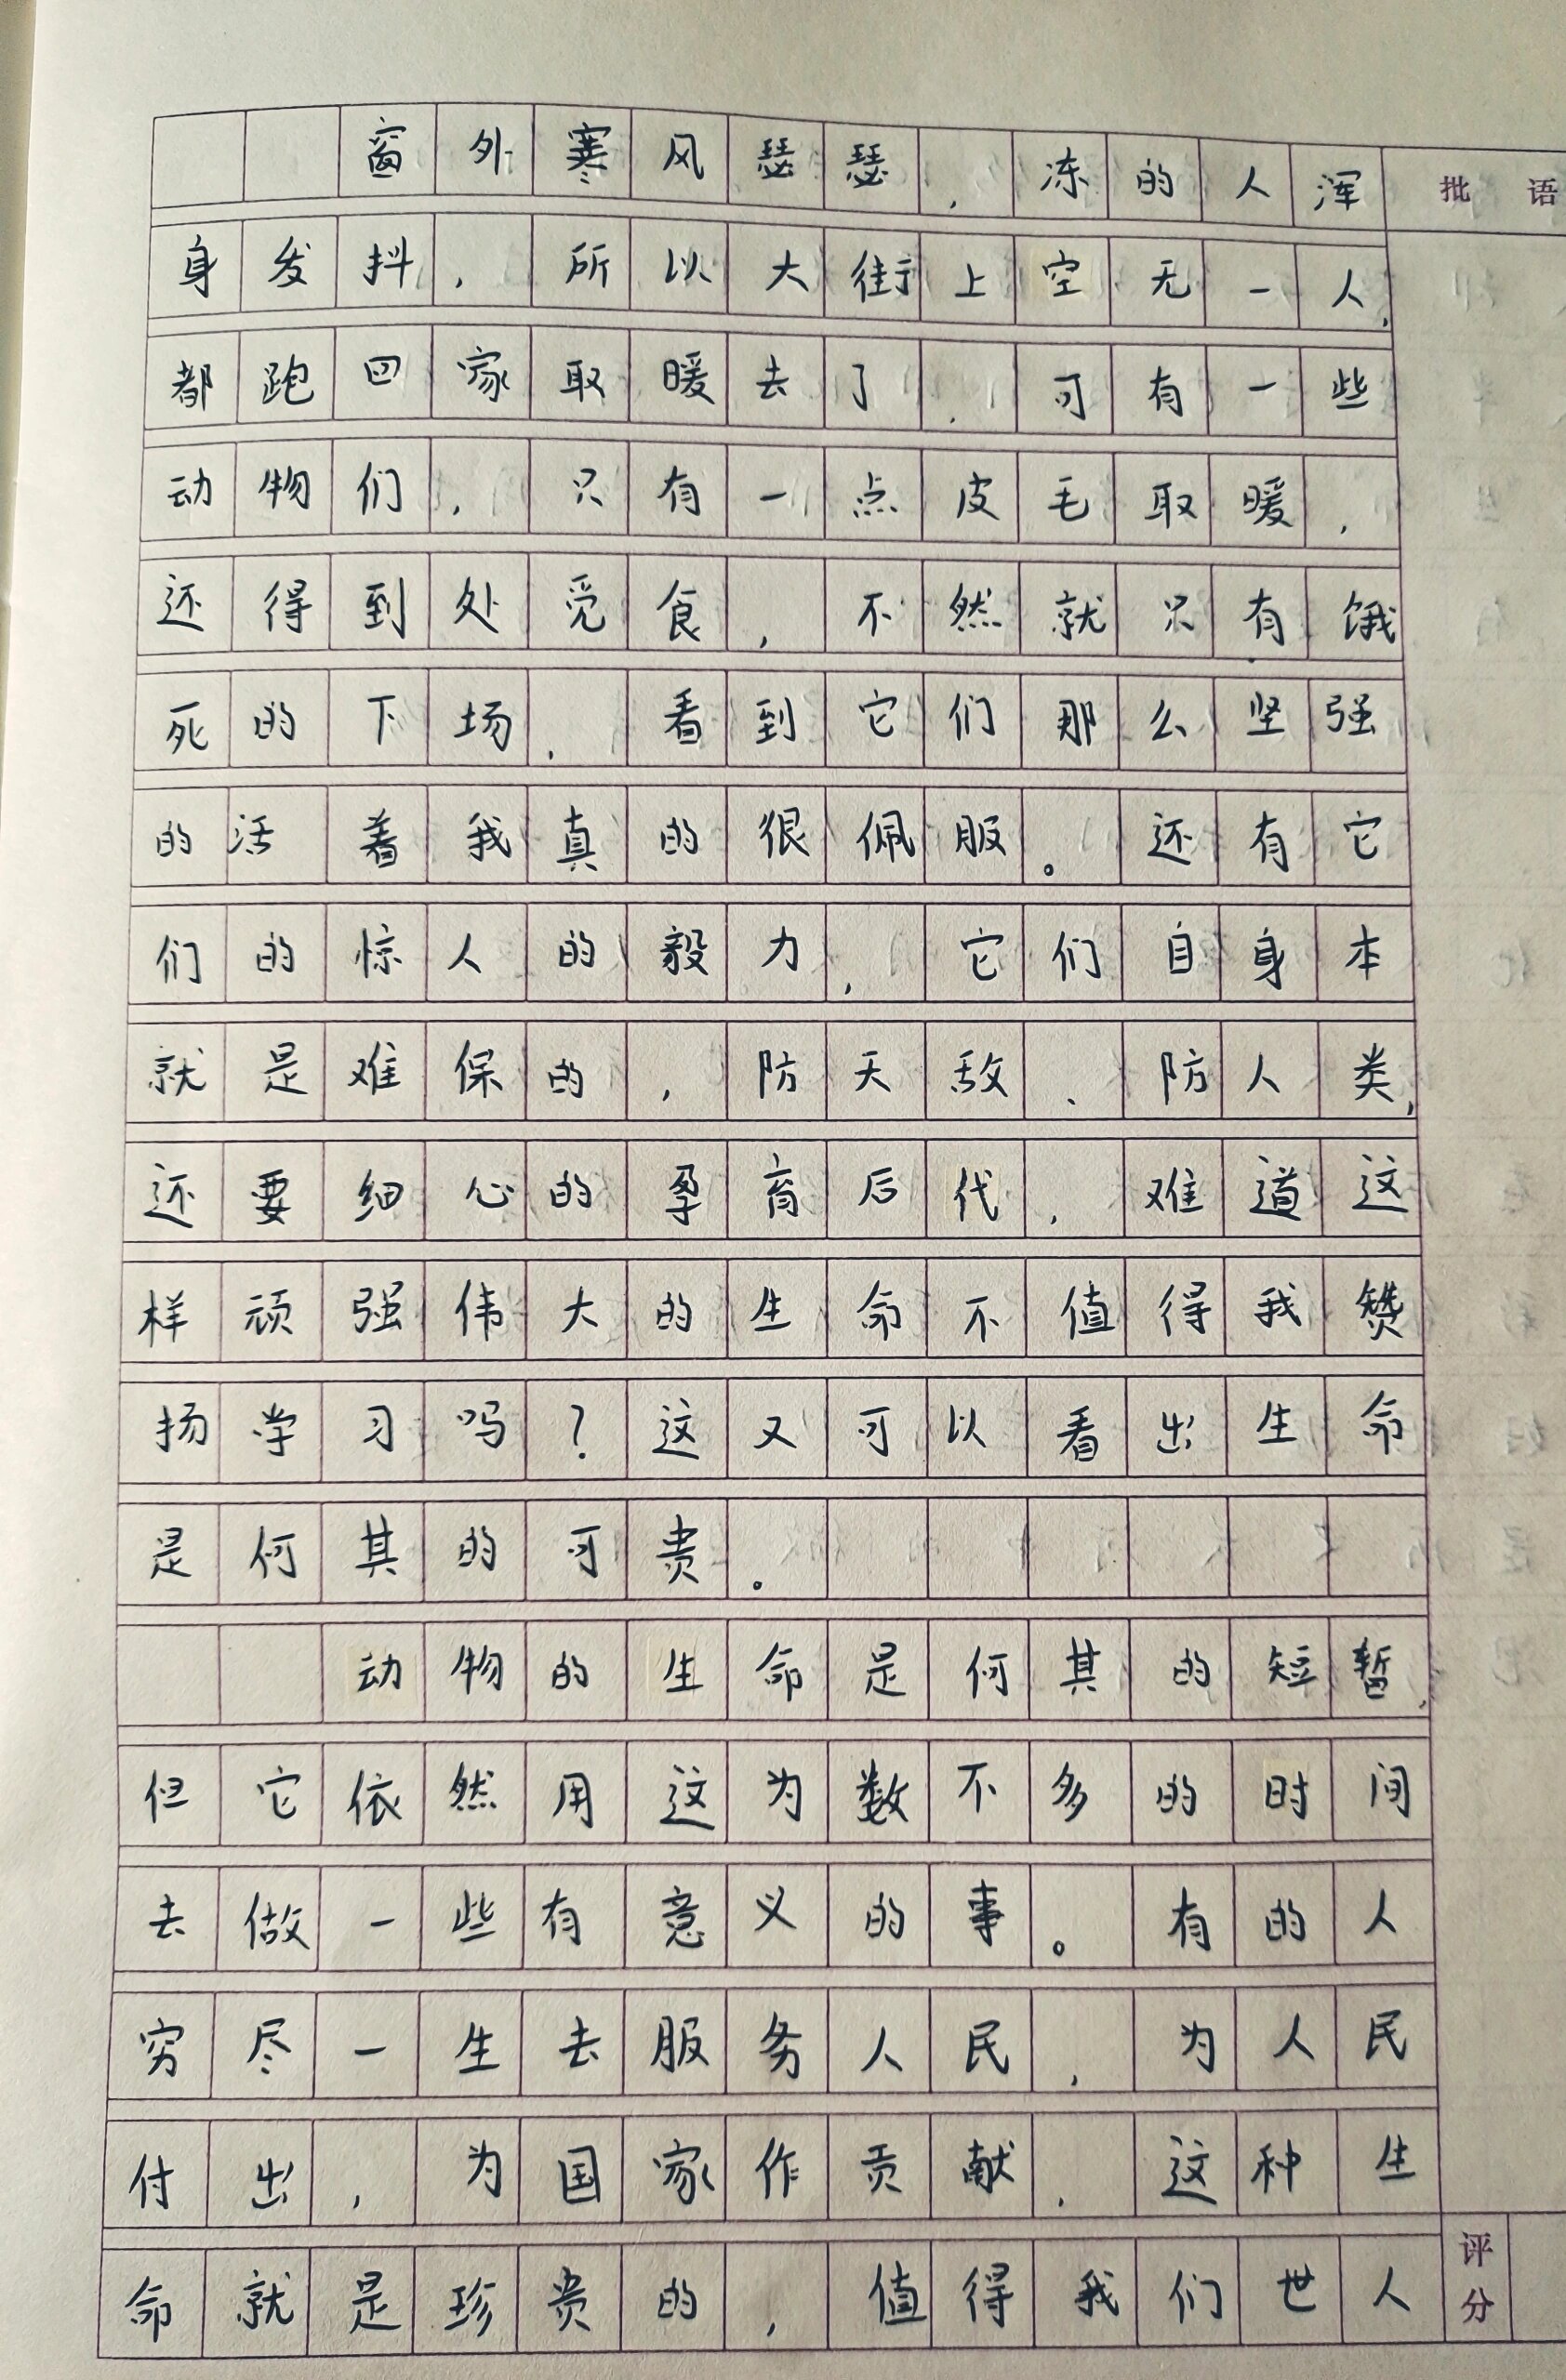 窗外寒风瑟瑟，冻的人浑
批语
身发抖，所以大街上空无一人，
都跑回家取暖去了，可有一些
动物们，只有一点皮毛取暖，
还得到处觅食，不然就只有饿
死的下场，看到它们那么坚强
的活着我真的很佩服。还有它
们的惊人的毅力，它们自身本
就是难保的，防天敌、防人类，
还要细心的孕育后代，难道这
样顽强伟大的生命不值得我赞
扬学习吗？这又可以看出生命
是何其的可贵。
动物的生命是何其的短暂，
但它依然用这为数不多的时间
去做一些有意义的事。有的人
穷尽一生去服务人民，为人民
付出，为国家作贡献，这种生
命就是珍贵的，值得我们世人
评分